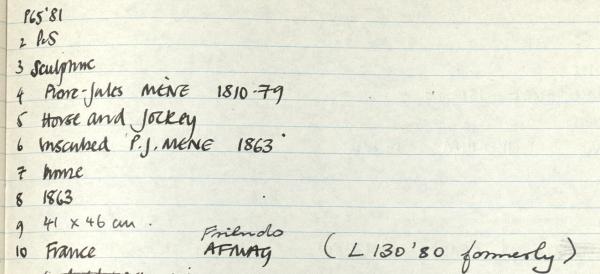 P65'81
2 P&S
3 Sculpture
4 Pierre-Jules MÈNE 1810-79
5 Horse and Jockey
6 Inscribed 'P.J. MENE 1863'
7 bronze
8 1863
9 41 x 46 cm.
Friends
10 France AFMAG (L 130'80 formerly)